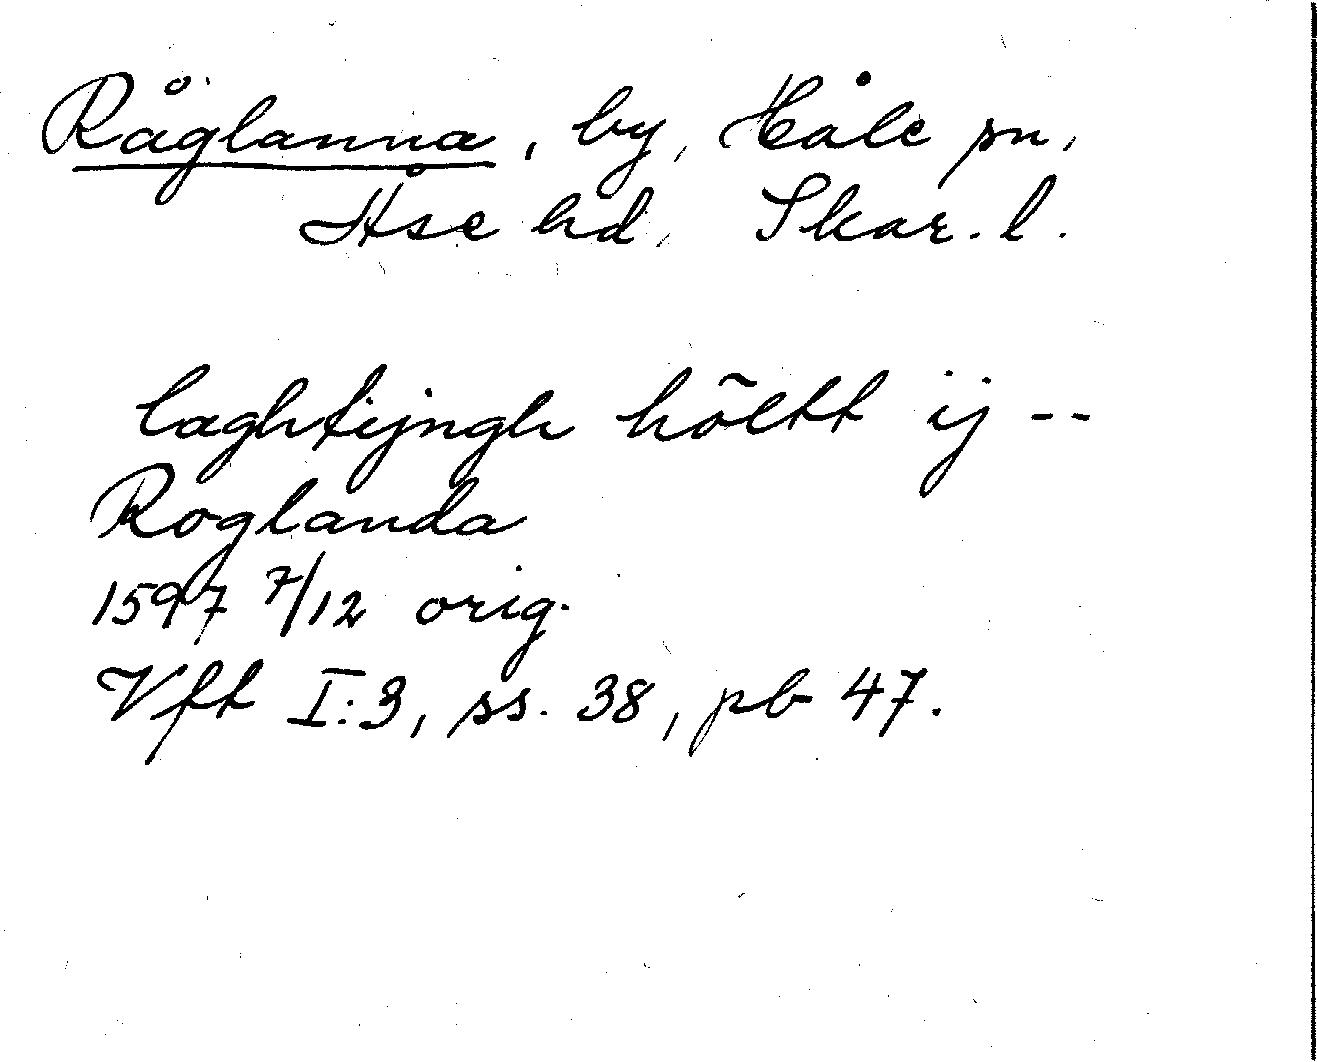 Råglanna, by, Håle sn,
Åse hd, Skar. l.
laghtijngh hõltt ij --
Roglanda
1597 7/12 orig.
Vft I:3, ss. 38, pb 47.